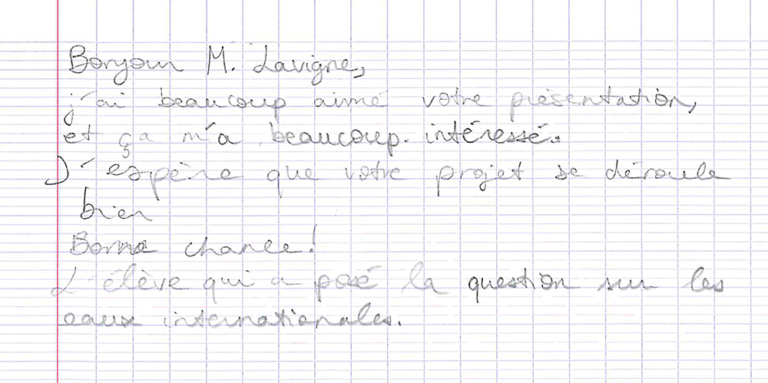 Bonjour M. Lavigne,
j'ai beaucoup aimé votre présentation,
et ça m'a beaucoup. intéressé.
J'espère que votre projet se déroule
bien
Bonne chance!
L'élève qui a posé la question sur les
eaux internationales.